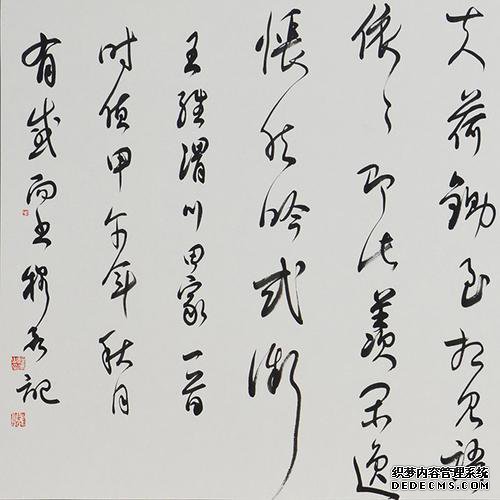 夫荷鋤至相見語
依々即此羨閑逸
悵然吟式微
王維渭川田家一首
时值甲午年秋月
有感而書記
织梦内容管理系统
DEDECMS.COM